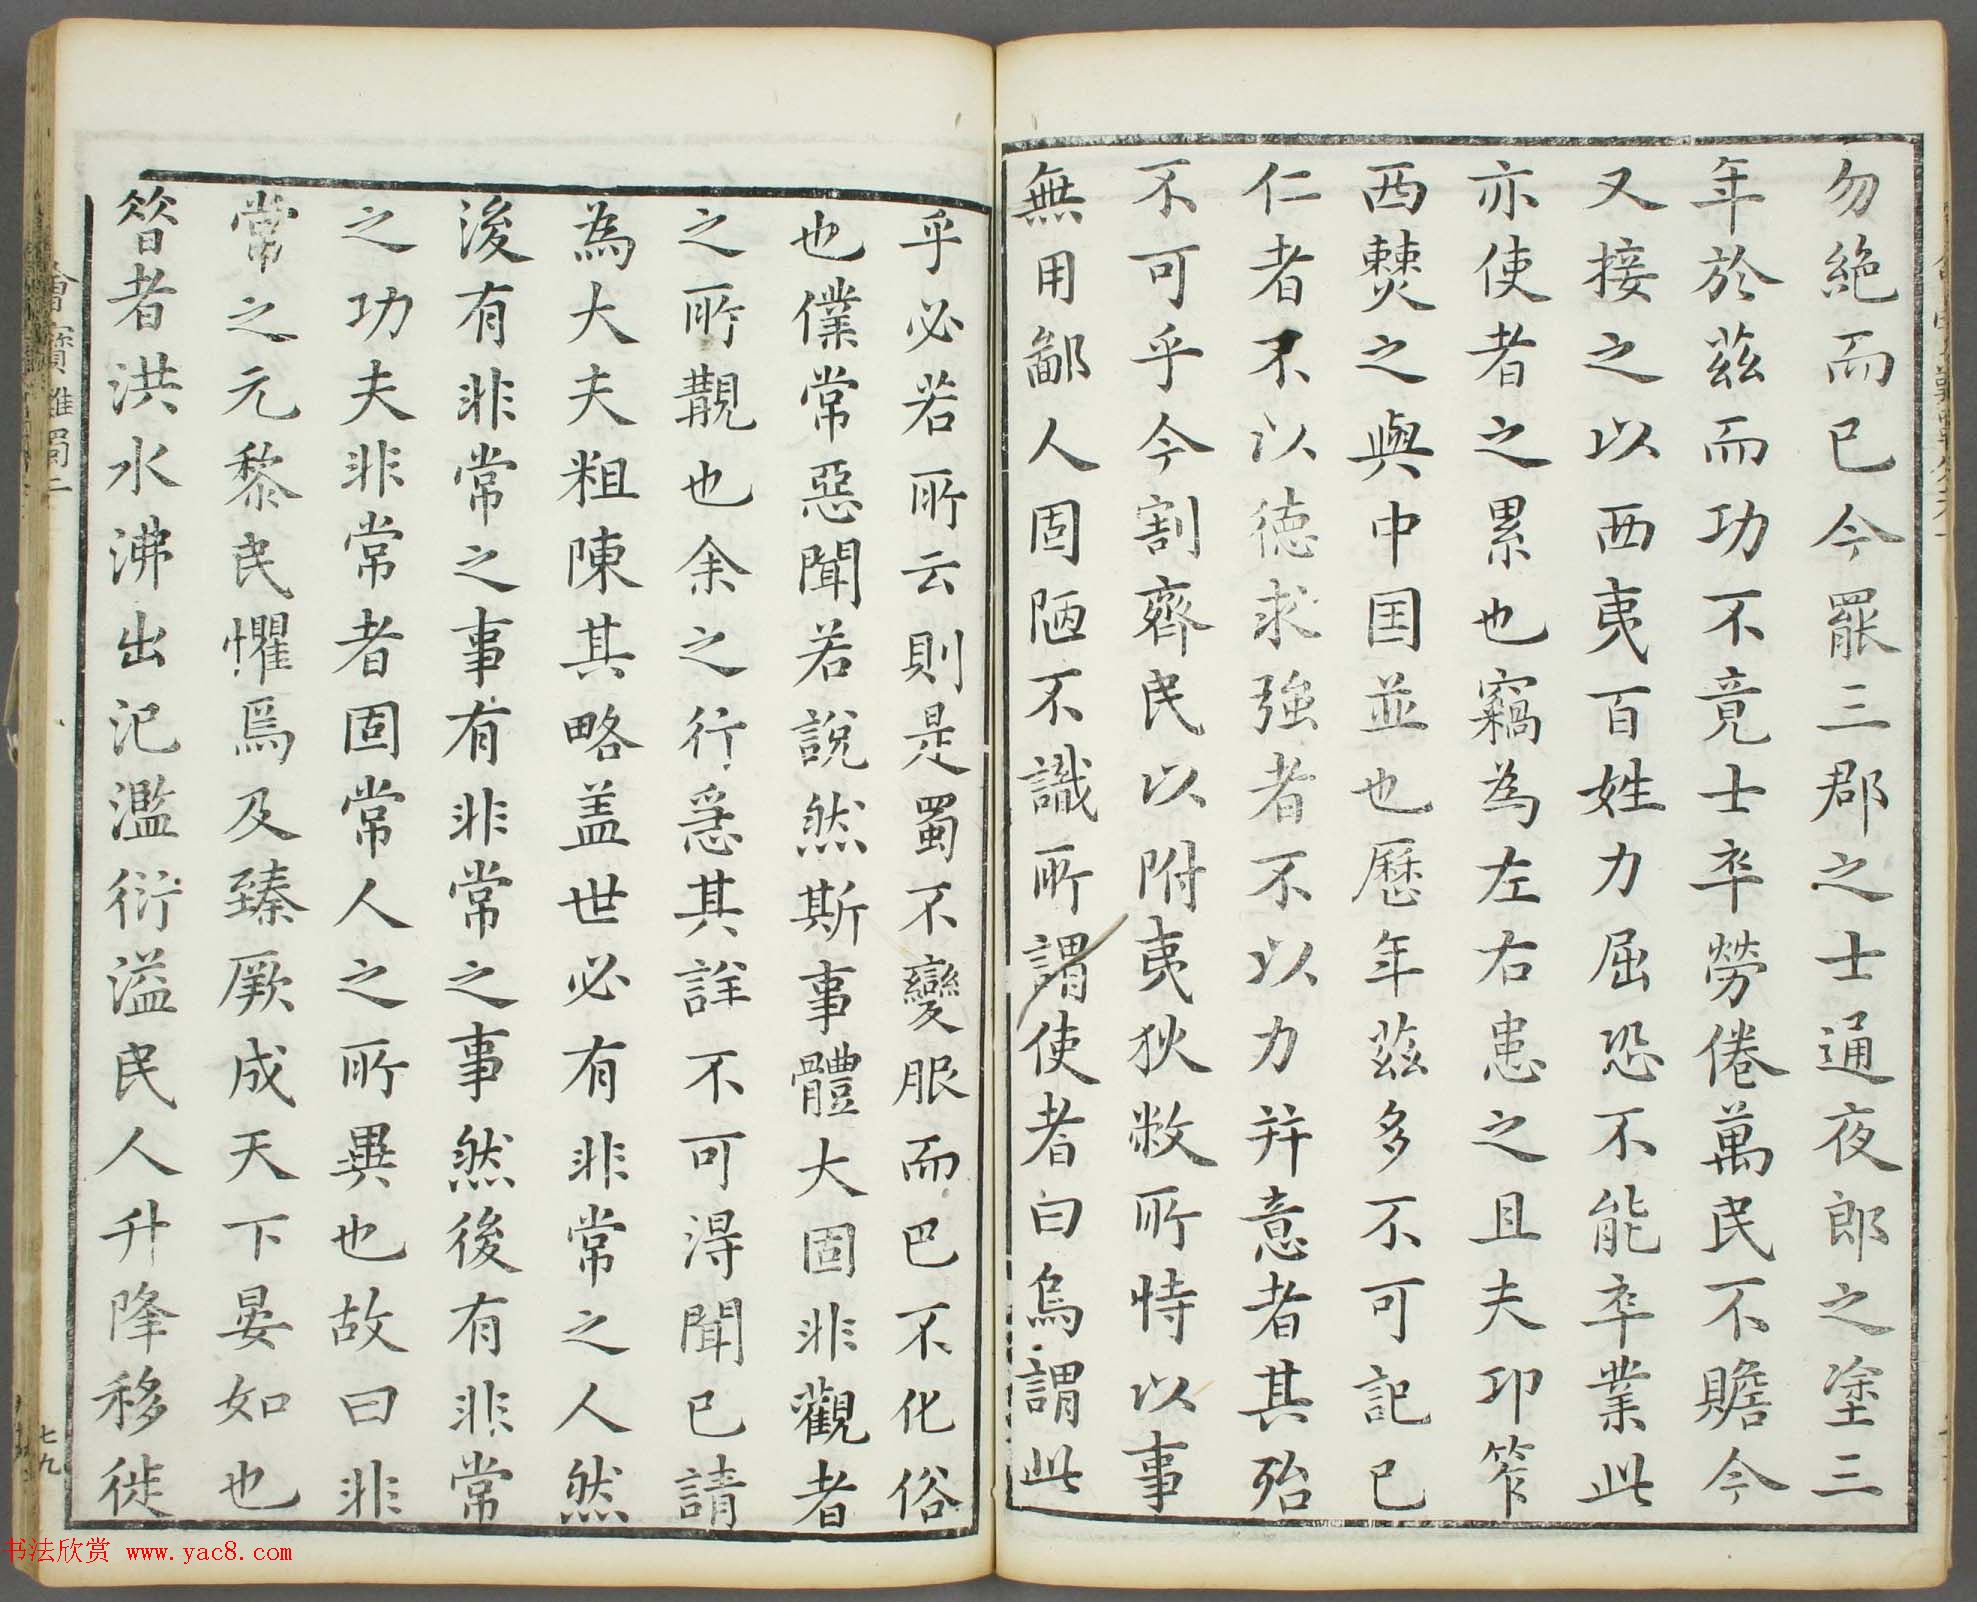 勿絶而已今罷三郡之士通夜郎之塗三
年於茲而功不竟士卒勞倦萬民不贍今
又接之以西夷百姓力屈恐不能卒業此
亦使者之累也竊為左右患之且夫邛筰
西僰之與中国並也歷年茲多不可記已
仁者不以徳求強者不以力并意者其殆
不可乎今割齊民以附夷狄弊所恃以事
無用鄙人固陋不識所謂使者曰烏謂此
乎必若所云則是蜀不變服而巴不化俗
也僕常惡聞若說然斯事體大固非觀者
之所覯也余之行急其詳不可得聞已請
為大夫粗陳其略盖世必有非常之人然
後有非常之事有非常之事然後有非常
之功夫非常者固常人之所異也故曰非
常之元黎民懼焉及臻厥成天下晏如也
昔者洪水沸出氾濫衍溢民人升降移徙
七九
书法欣赏 www.yac8.com